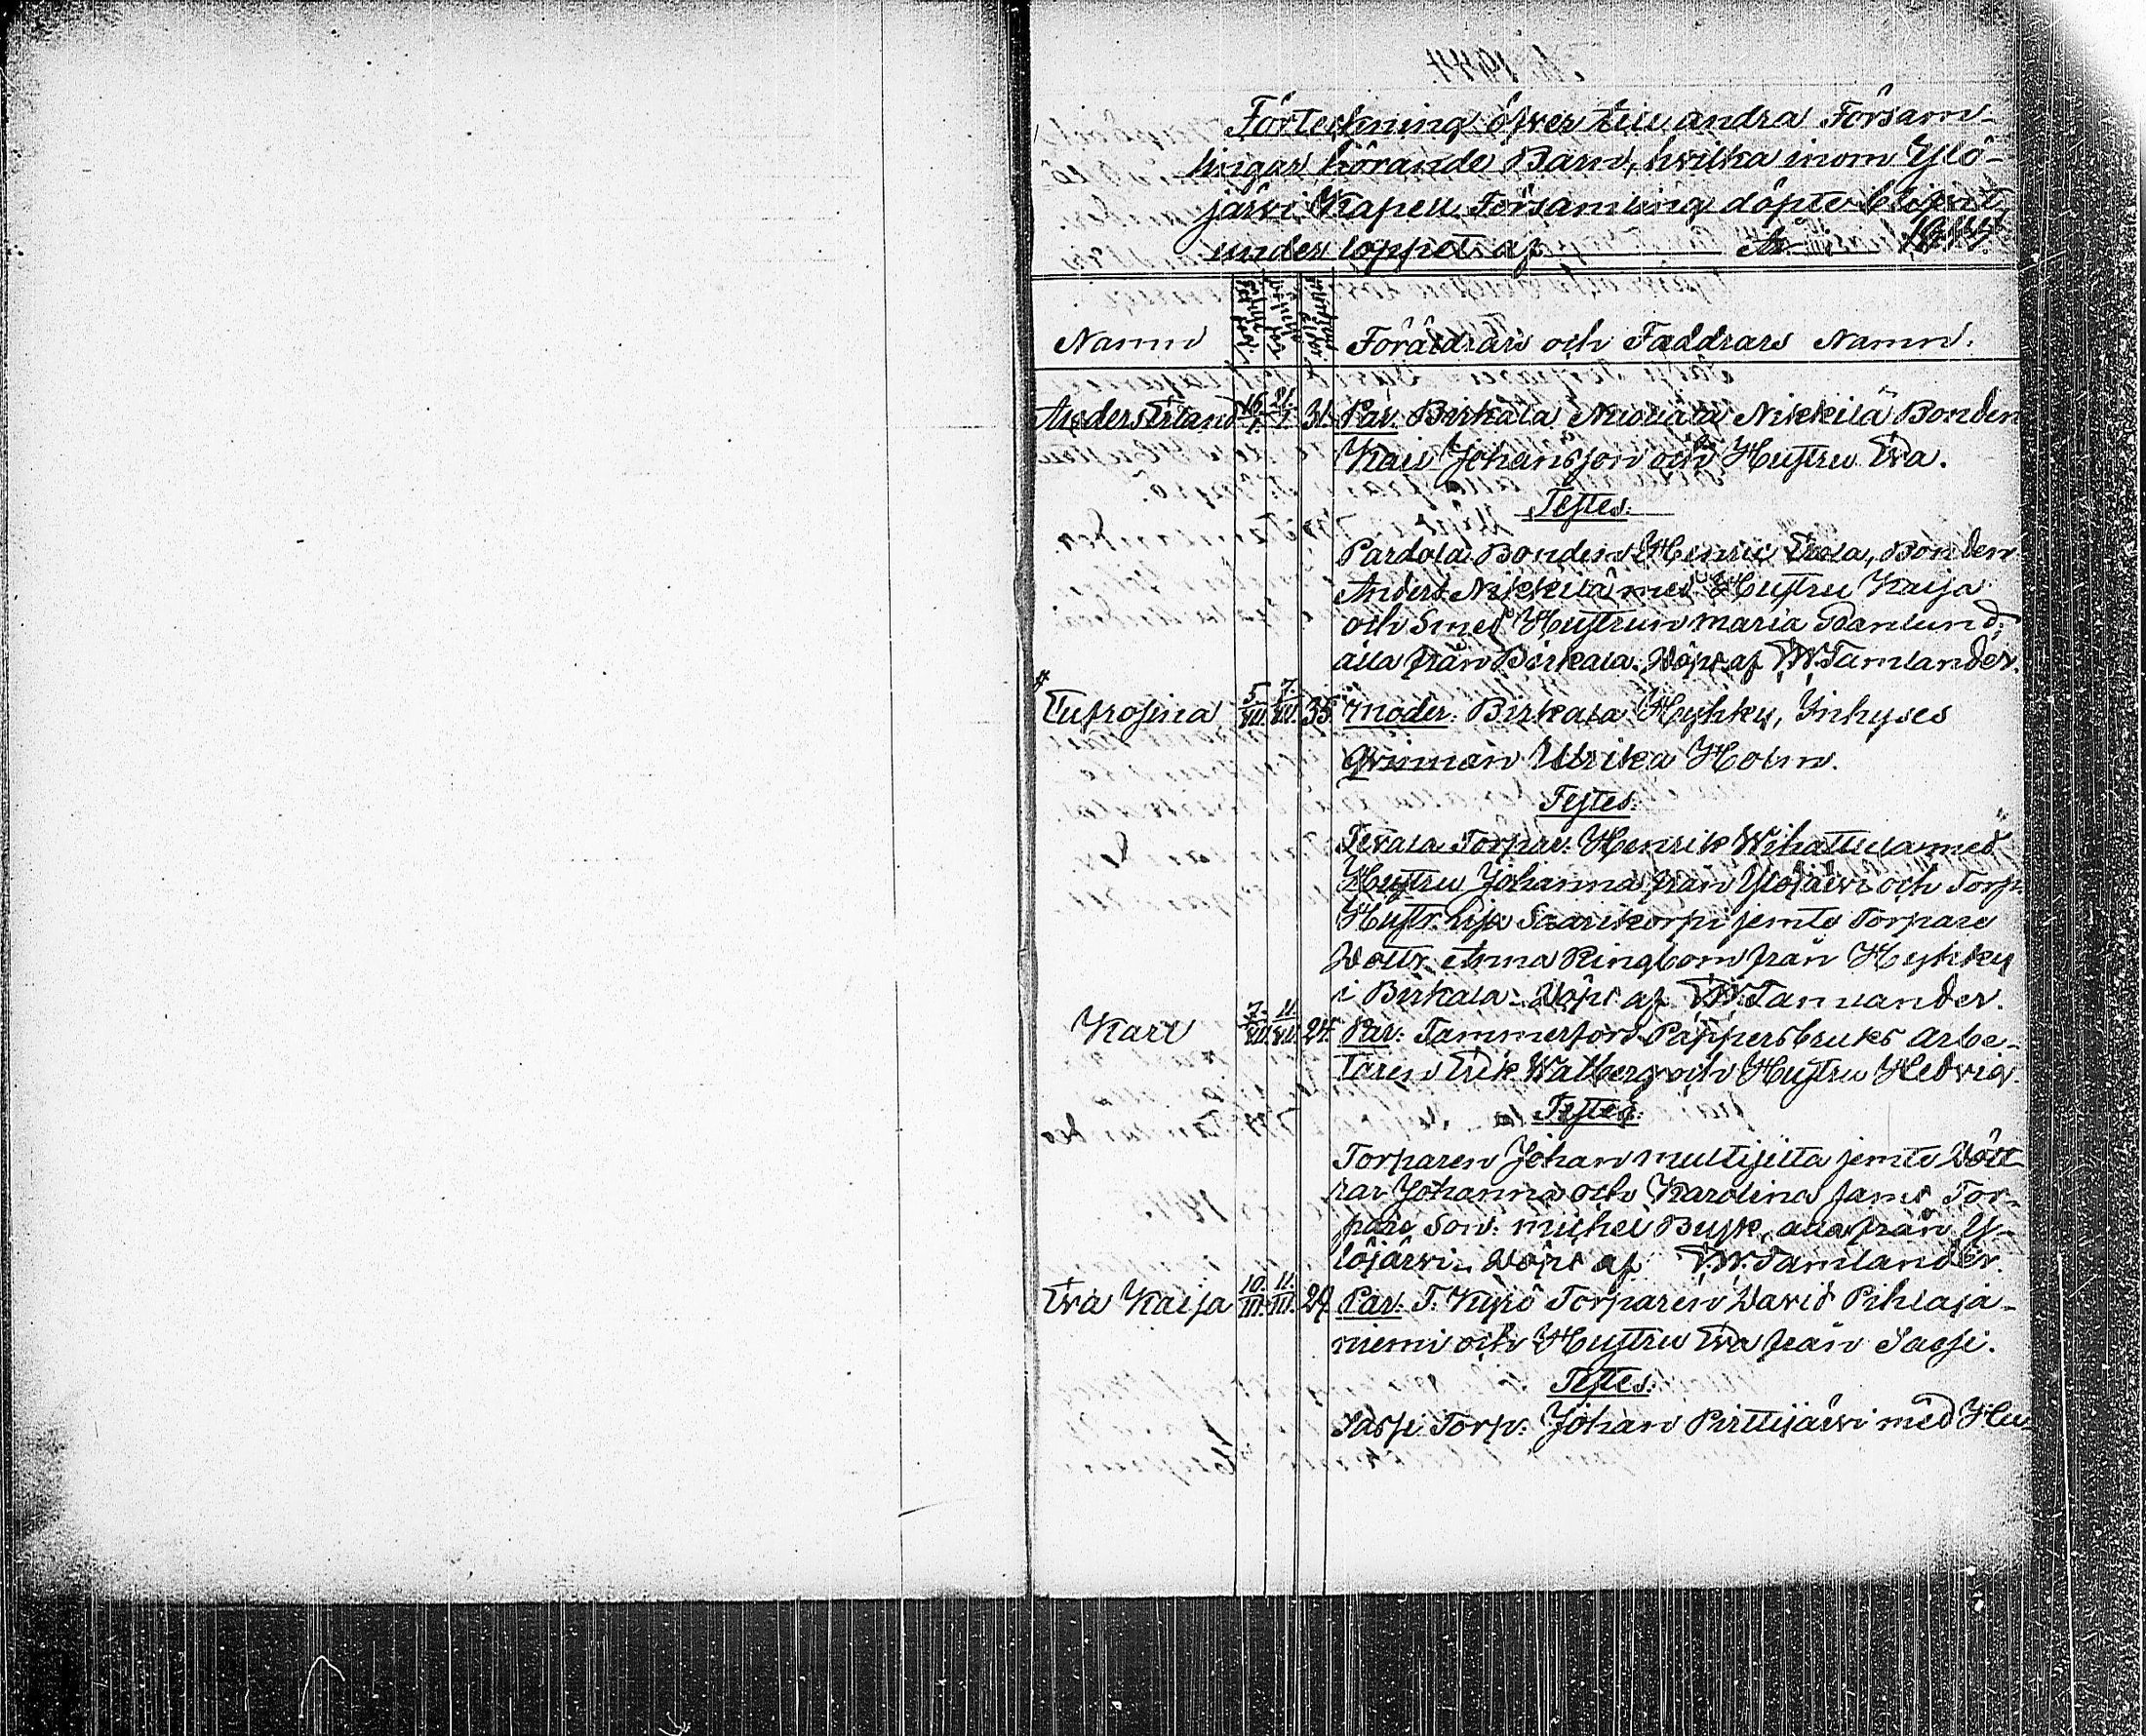 Förteckning öfver till andra Försam-
lingar hörande Barn, hvilka inom Ylö-
järvi Kapell Församling döpte blifvit
under loppet af År
Namn
Föräldrars och Faddrars Namn.
Anders Erland 16/1. 21/1. 31. Par. Birkala Nuoliala Nikkilä Bonden
Karl Johansson och Hustru Eva.
Testes.
Pardola Bonden Henric Erola, Bonden
Anders Nikkilä med Hustru Kaija
och Smed Hustrun Maria
alla från Birkala. Döpt af W. Tamlander.
Eufrosina 5/VII. 7/VII. 35 Moder: Birkala Hyhky, Inhyses
Qvinnan Ulrika Holm.
Testes.
Tevala Torpar: Henrik Wihattula med
Hustru Johanna från Ylöjärvi och Torp.
Hustr: Lisa Saarikorpi jemte Torpare
Dottr. Anna Ringbom från Hyhky
i Birkala. Döpt af W. Tamlander.
Karl 7. 11. 24. Par: Tammerfors Pappersbruks Arbe-
taren Erik Walberg och Hustru Hedvig.
Testes.
Torparen Johan Multisilta jemte Dött-
rar Johanna och Karolina samt Tor-
pare Son: Michel Busk, alla från Y-
löjärvi. Döpt af W. Tamlander.
Eva Kaija 10/III. 11/III. 29 Par: T. Kyrö Torparen David Pihlaja-
niemi och Hustru Eva från Sasi.
Testes.
Sasi Torp: Johan Pirttijärvi med Hu-